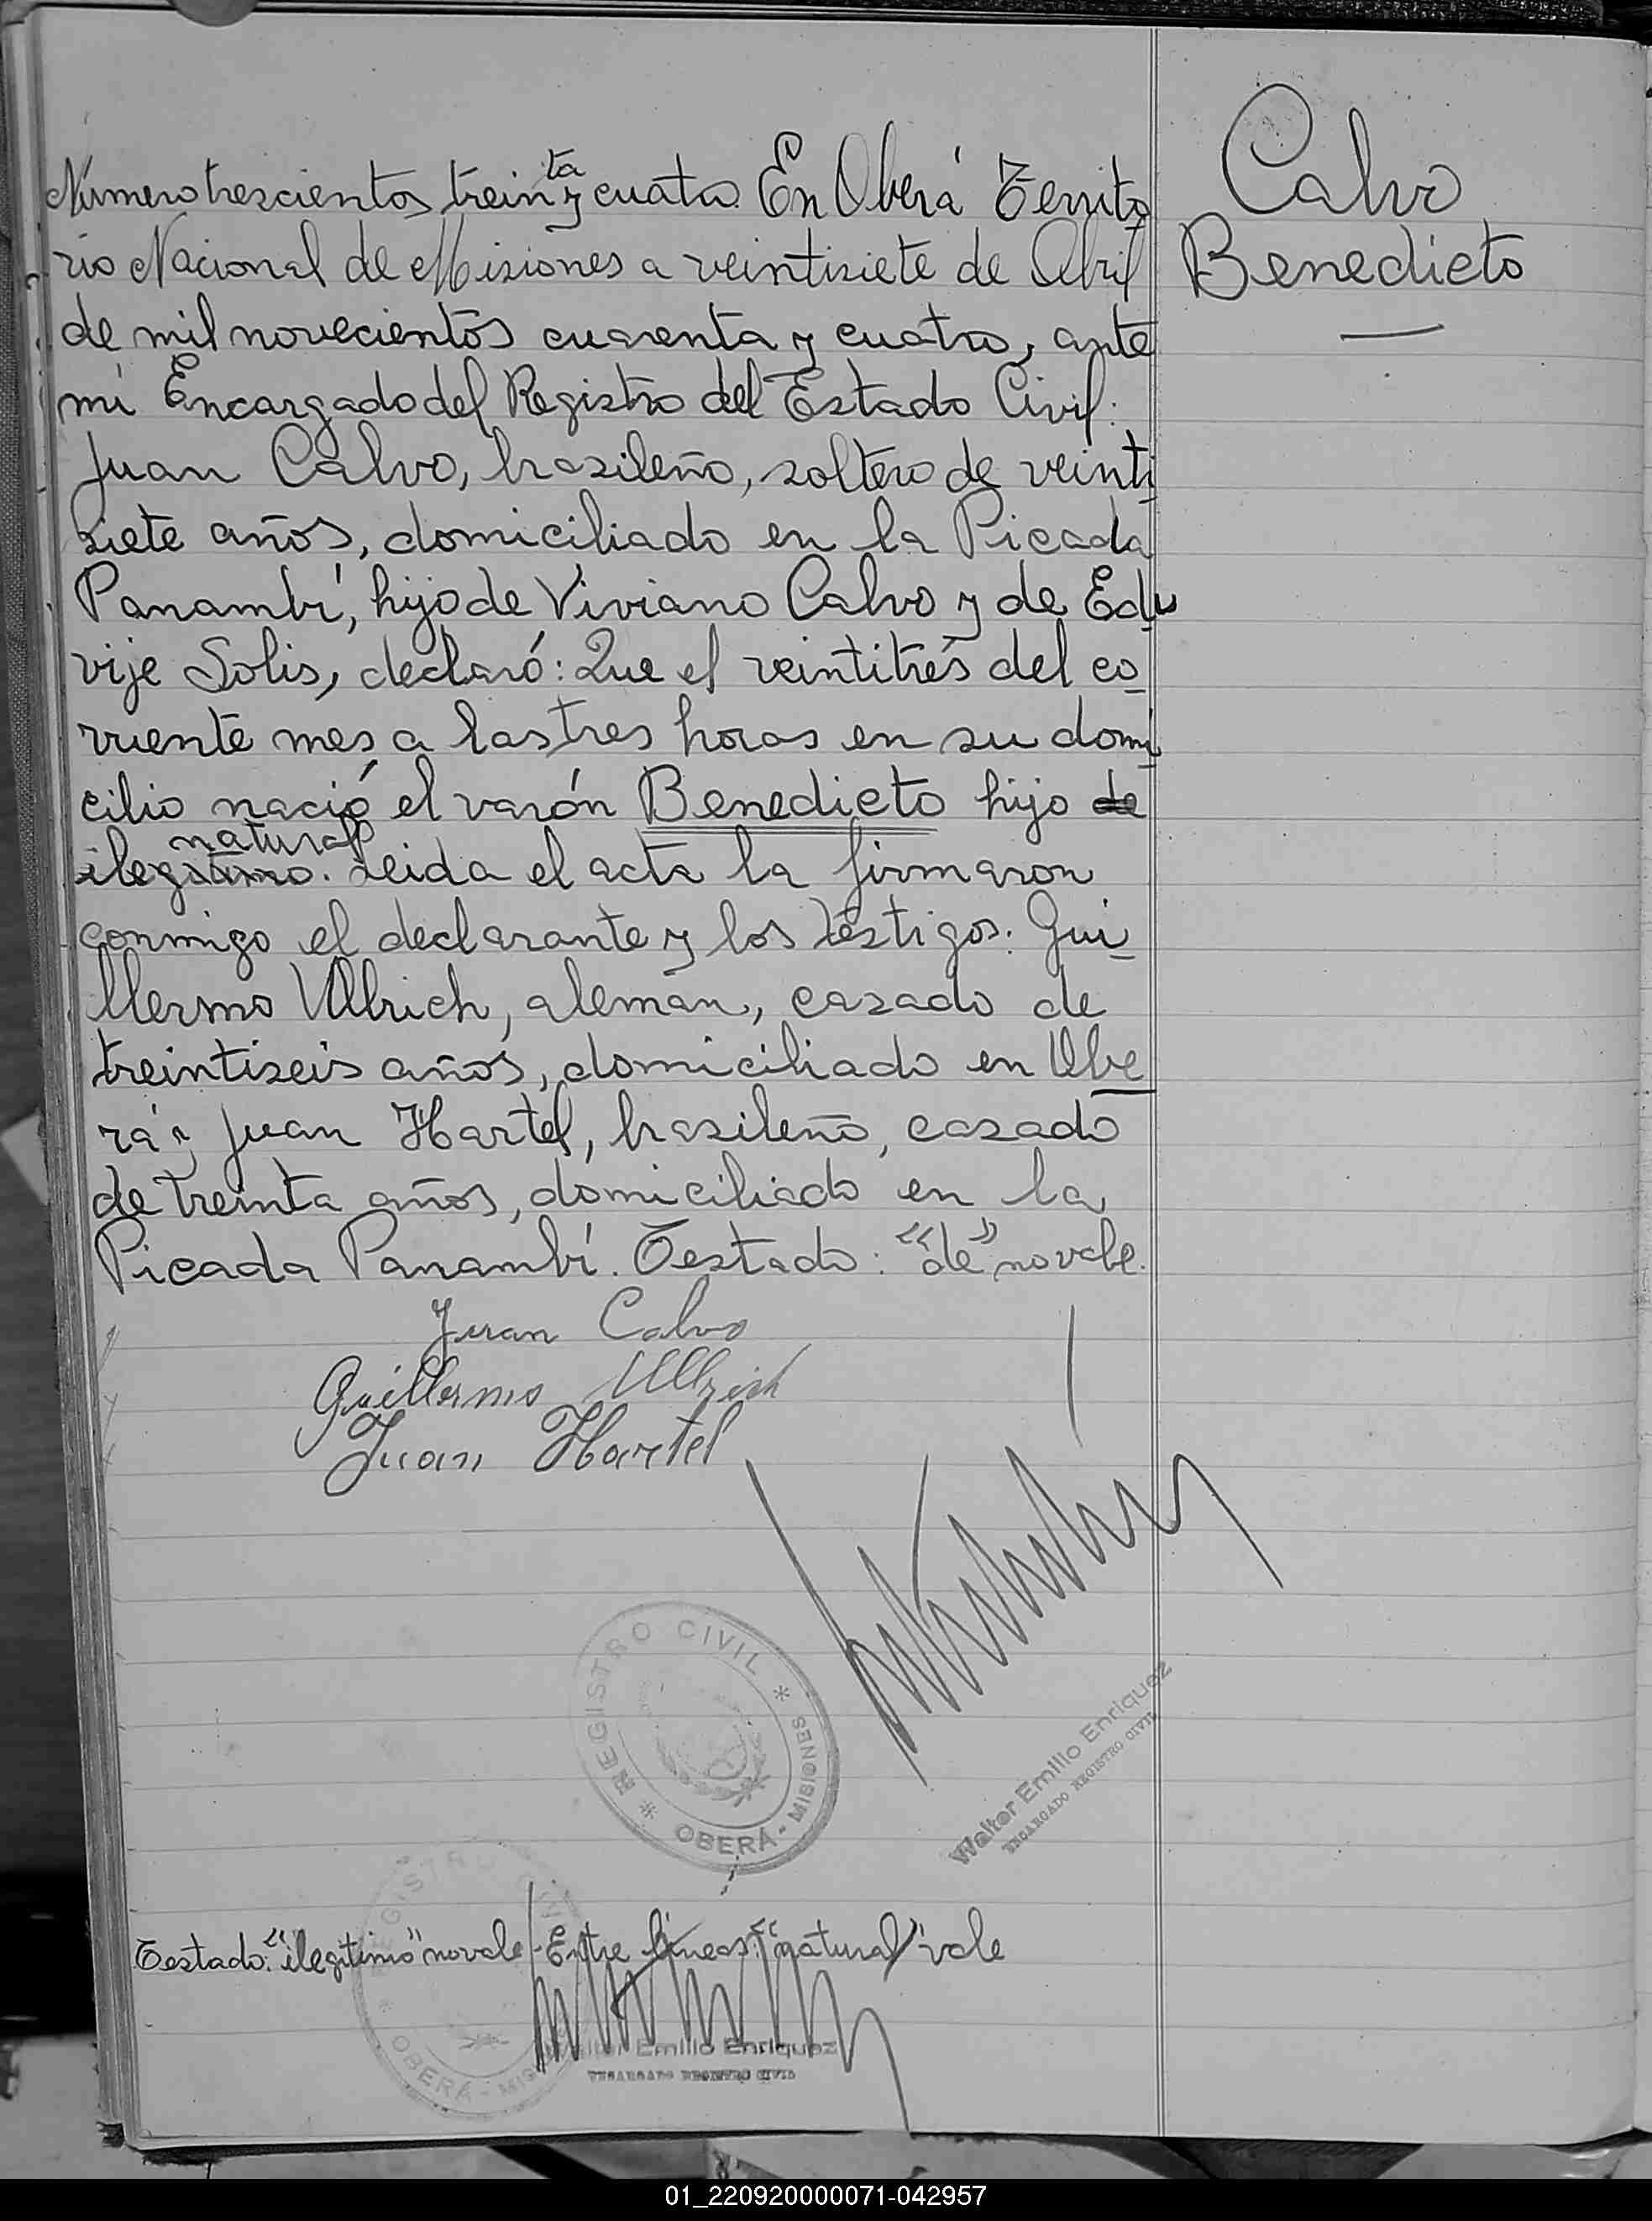 Número trescientos treinta y cuatro. En Oberá Territo
rio Nacional de Misiones a veintisiete de Abril
de mil novecientos cuarenta y cuatro, ante
mí Encargado del Registro del Estado Civil:
Juan Calvo, brasileño, soltero de veinti
siete años, domiciliado en la Picada
Panambí, hijo de Viviano Calvo y de Edu
vije Solis, declaró: Que el veintitrés del co
rriente mes a las tres horas en su domi
cilio nació el varón Benedicto hijo de
natural
ilegítimo. Leida el acta la firmaron
conmigo el declarante y los testigos: Gui
llermo Ullrich, alemán, casado de
treintiseis años, domiciliado en Obe
rá y Juan Hartel, brasileño, casado
de treinta años, domiciliado en la
Picada Panambí. Testado: "de" no vale.
Juan Calvo
Guillermo Ullrich
Juan Hartel
Calvo
Benedicto
REGISTRO CIVIL * OBERÁ - MISIONES *
Walter Emilio Enriquez
ENCARGADO REGISTRO CIVIL
Testado: "ilegítimo" no vale - Entre líneas: "natural" vale
REGISTRO CIVIL * OBERÁ - MISIONES
Walter Emilio Enriquez
ENCARGADO REGISTRO CIVIL
01_220920000071-042957